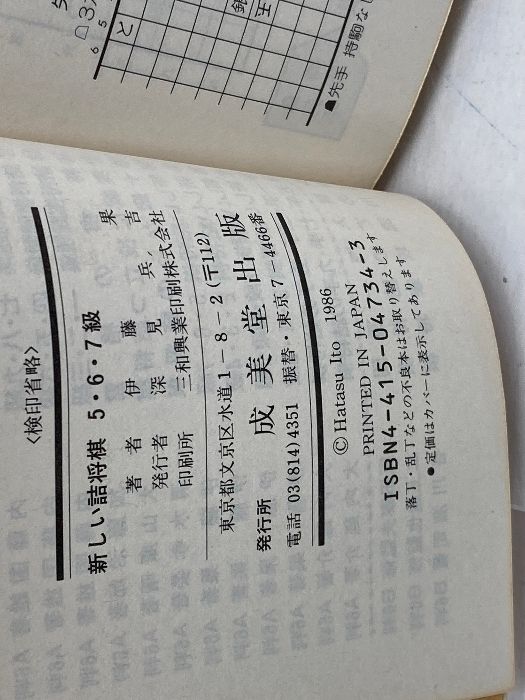 6 5
と
銀
●先手 持駒な
〈検印省略〉
新しい詰将棋 5・6・7級
著者 伊藤 果
発行者 深見兵吉
印刷所 三和興業印刷株式会社
東京都文京区水道1-8-2(〒112)
発行所 成美堂出版
電話 03(814)4351 振替・東京7-4466番
© Hatasu Ito 1986
PRINTED IN JAPAN
ISBN4-415-04734-3
落丁・乱丁などの不良本はお取り替えします
●定価はカバーに表示してあります